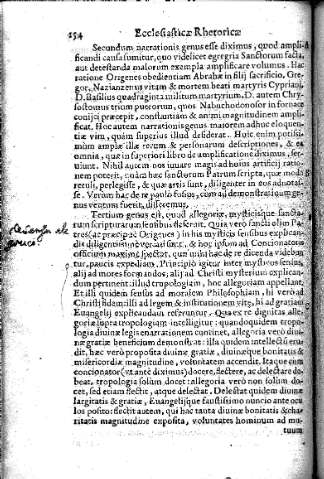 154 Ecclesiasticæ Rhetoricæ
Secundum narrationis genus esse diximus, quod ampli-
ficandi causa sumitur, quo videlicet egregia Sanctorum facta,
aut detestanda malorum exempla amplificare volumus. Hac
ratione Origenes obedientiam Abrahæ in filij sacrificio, Gre-
gor. Nazianzenus vitam & mortem beati martyris Cypriani,
D. Basilius quadraginta militum martyrium. D. autem Chry-
sostomus trium puerorum, quos Nabuchodonosor in fornacē
conijci præcepit, constantiam & animi magnitudinem ampli-
ficat. Hoc autem narrationis genus maiorem adhuc eloquen-
tiæ vim, quàm superius illud desiderat. Huic enim potissi-
mùm amplæ illæ rerum & personarum descriptiones, &
omnia, quæ in superiori libro de amplificatione diximus, ser-
uiunt. Nihil autem nos iuuare magis ad huius artificij ratio-
nem poterit, quàm hæc sanctorum Patrum scripta, quæ modò
retuli, perlegisse, & quæ artis sunt, diligenter in eos adnotas-
se. Verùm hac de re paulò fusiùs, cùm ad demonstratiuum ge-
nus ventum fuerit, disseremus.
Tertium genus est, quod allegoriæ, mysticisque sancta-
rum scripturarum sensibus deseruit. Quia verò sancti olim Pa-
tres (at præcipuè Origenes) in his mysticis sensibus explican-
dis diligentissimi versati sunt, & hoc ipsum ad Concionatoris
officium maximè spectat, quo minùs hac de re dicenda videbun-
tur, paucis expediam. Principiò igitur inter mysticos sensus,
alij ad mores formandos; alij ad Christi mysterium explican-
dum pertinent: illud tropologiam, hoc allegoriam appellant.
Et illi quidem sensus ad moralem Philosophiam, hi verò ad
Christi fidem illis ad legem & institutionem vitæ, hi ad gratiam
Euangelij explicandam referuntur. Qua ex re dignitas alle-
goriæ supra tropologiam intelligitur: quandoquidem tropo-
logia diuinæ legis enarrationem continet, allegoria verò diui-
næ gratiæ beneficium demonstrat: illa quidem intellectū eru-
dit, hæc verò proposita diuina gratiæ, diuinæque bonitatis &
misericordiæ magnitudine, voluntatem accendit. Itaque cùm
concionator (vt antè diximus) docere, flectere, ac delectare de-
beat, tropologia solùm docet: allegoria verò non solùm do-
cet, sed etiam flectit, atque delectat. Delectat quidem diuinæ
largitatis & gratiæ, Euangelijque faustissimo nuncio ante ocu-
los posito: flectit autem, qui hac tanta diuinæ bonitatis & cha-
ritatis magnitudine exposita, voluntates hominum ad mu-
tuum